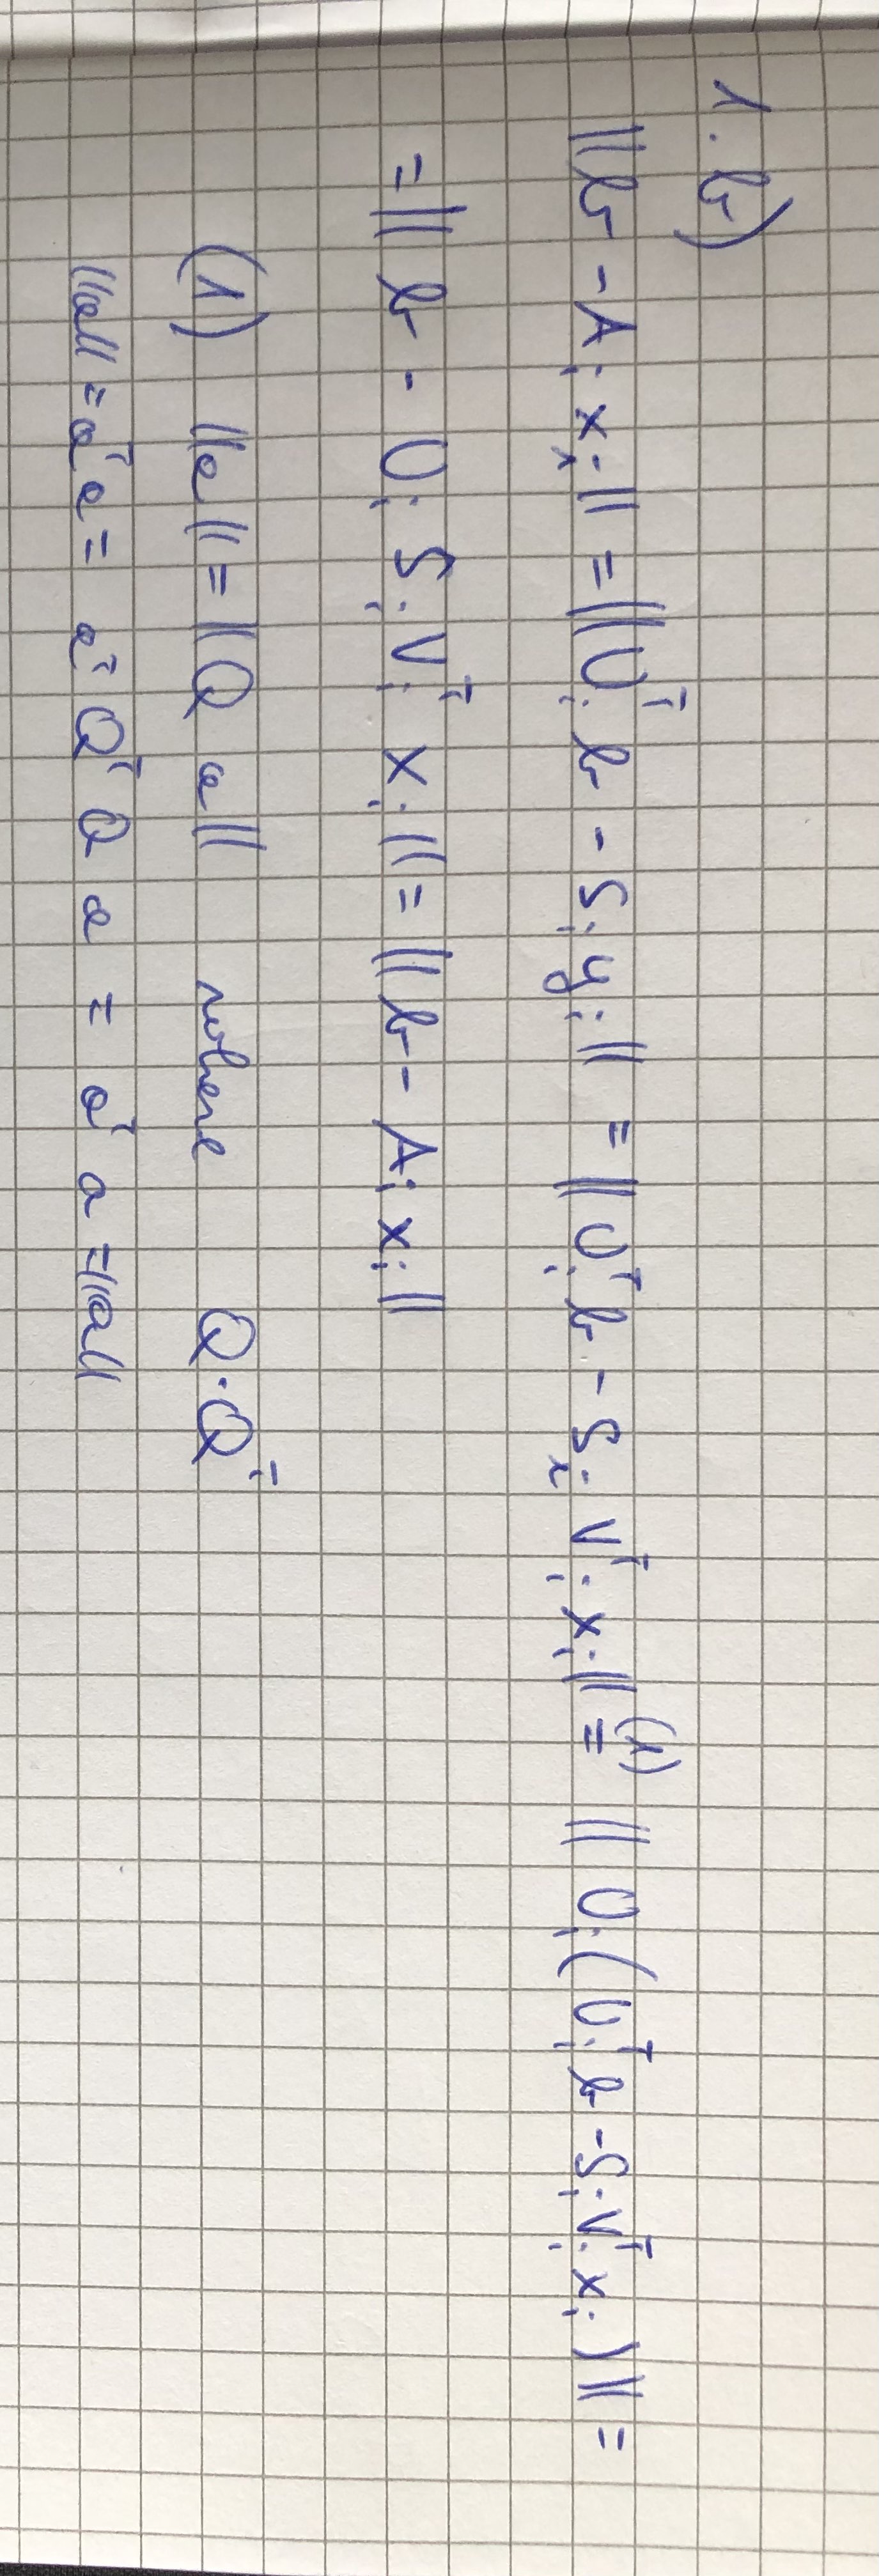 1. b)
||b - Aᵢ xᵢ|| = ||Uᵢᵀ b - Sᵢ yᵢ|| = ||Uᵢᵀ b - Sᵢ Vᵢᵀ xᵢ|| =⁽¹⁾ ||Uᵢ(Uᵢᵀ b - Sᵢ Vᵢᵀ xᵢ)|| =
= || b - Uᵢ Sᵢ Vᵢᵀ xᵢ|| = ||b - Aᵢ xᵢ||
(1) ||a|| = ||Q a|| where Q·Qᵀ
||a|| = aᵀa = aᵀ Qᵀ Q a = aᵀ a = ||a||